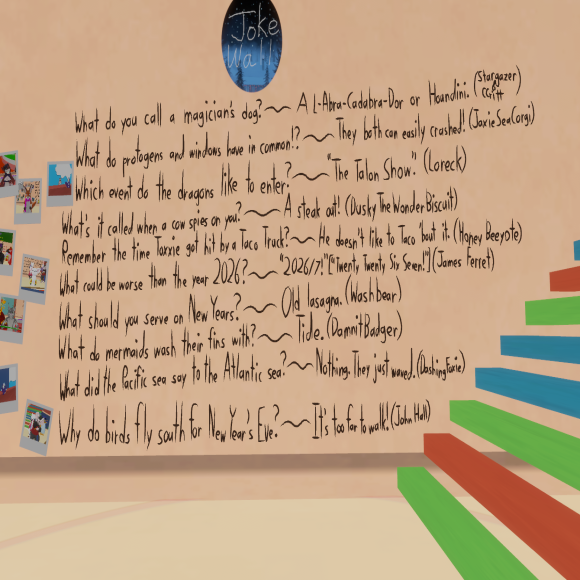 Joke
Wall
What do you call a magician's dog? ~ A L-Abra-Cadabra-Dor or Houndini. (Stargazer & CGritt)
What do protogens and windows have in common!? ~ They both can easily crashed! (JaxieSeaCorgi)
Which event do the dragons like to enter? ~ "The Talon Show." (Loreck)
What's it called when a cow spies on you? ~ A steak out! (DuskyTheWonderBiscuit)
Remember the time Taxxie got hit by a Taco Truck? ~ He doesn't like to Taco 'bout it. (Honey Beeyote)
What could be worse than the year 2026? ~ "2026/7!" ["Twenty Twenty Six Seven!"] (James Ferret)
What should you serve on New Years? ~ Old lasagna. (Washbear)
What do mermaids wash their fins with? ~ Tide. (DamnitBadger)
What did the Pacific sea say to the Atlantic sea? ~ Nothing. They just waved. (DashingFoxie)
Why do birds fly south for New Year's Eve? ~ It's too far to walk! (John Hall)